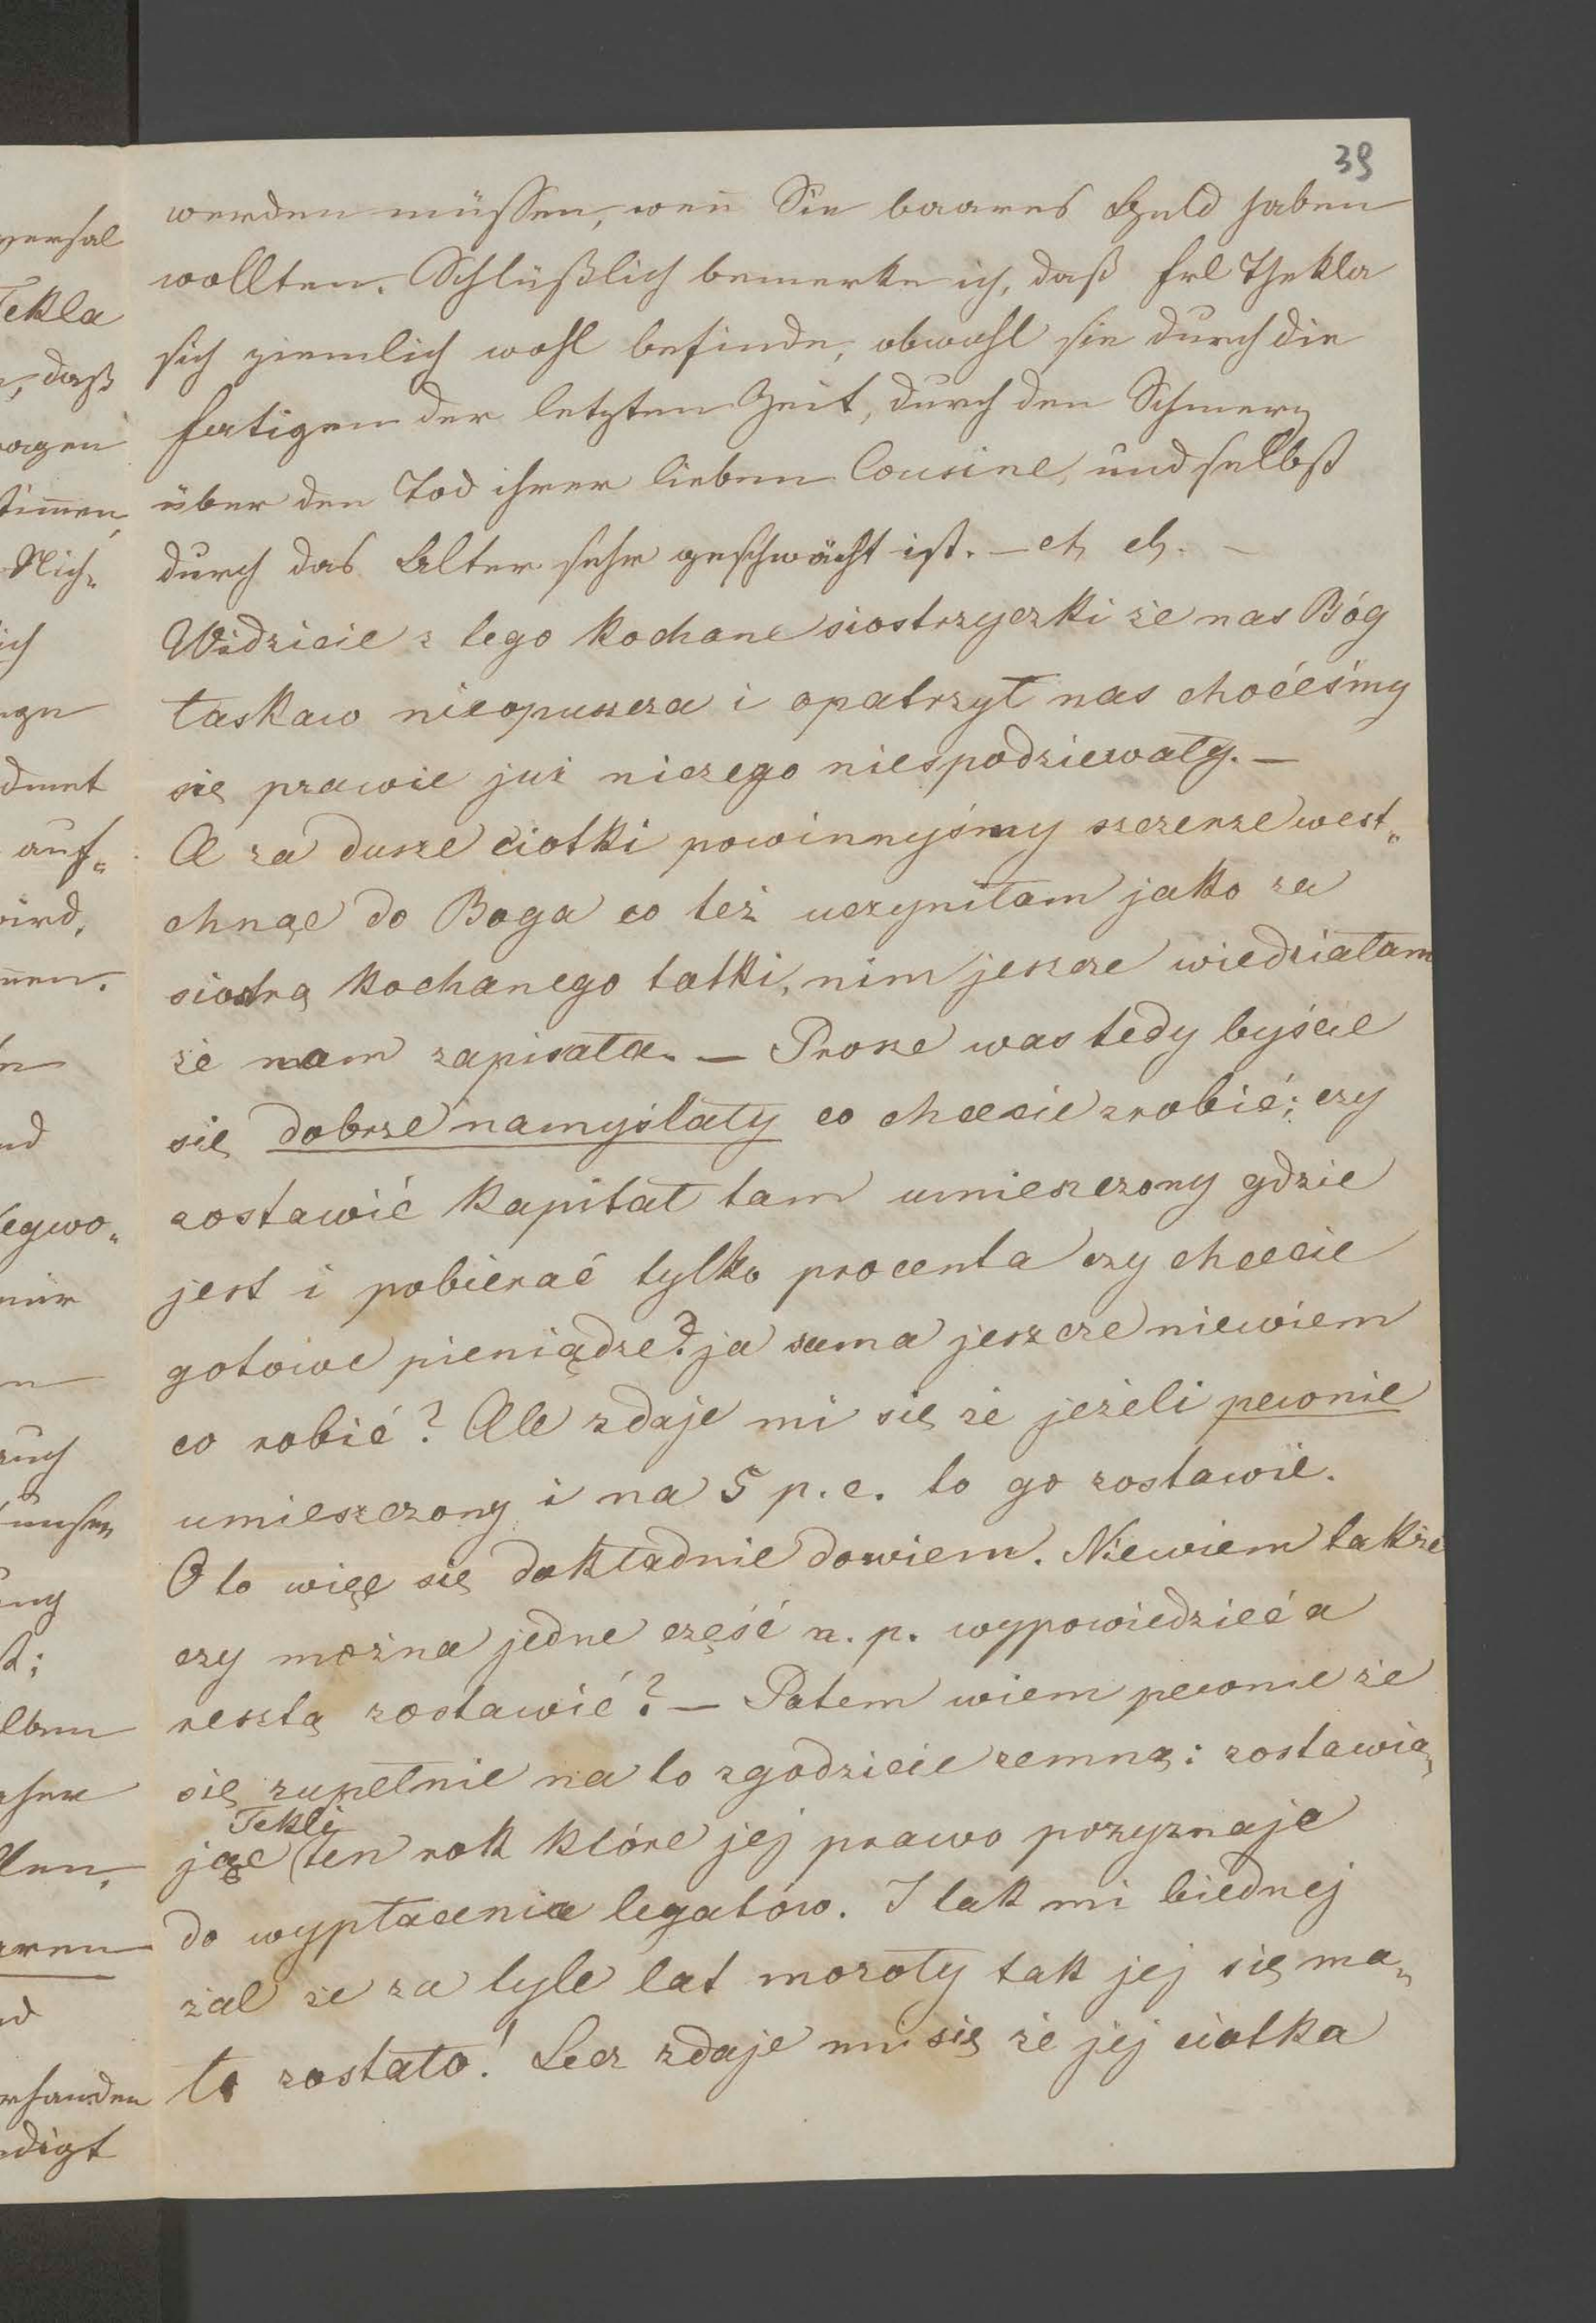 39
werden müssen, wen̄ Sie baares Geld haben
wollten. Schlüßlich bemerke ich, daß Frl Thekla
sich ziemlich wohl befinde, obwohl sie durch die
Fatigen der letzten Zeit, durch den Schmerz
über den Tod ihrer lieben Cousine, und selbst
durch das Alter sehr geschwächt ist. – etc etc. –
Widzicie z tego kochane siostrzyczki że nas Bóg
łaskaw nieopuszcza i opatrzył nas choćeśmy
się prawie już niczego niespodziewały. –
A za dusze ciotki powinnyśmy szczerze west„
chnąc do Boga co też uczyniłam jako za
siostrą kochanego tatki, nim jeszcze wiedziałam
że nam zapisała. – Prosze was tedy byście
się dobrze namyslały co chcecie zrobić; czy
zostawić kapitał tam umieszczony gdzie
jest i pobierać tylko procenta czy chcecie
gotowe pieniądze? ja sama jeszcze niewiem
co robić? Ale zdaje mi się że jeżeli pewnie
umieszczony i na 5 p.c. to go zostawie.
O to więc się dokładnie dowiem. Niewiem także
czy można jedne część n. p. wypowiedzieć a
resztą zostawić? – Patem wiem pewnie że
się zupełnie na to zgodzicie zemną: zostawia„
Tekli
jąc ten rok które jej prawo przyznaje
do wypłacenia legatów. I tak mi biednej
żal że za tyle lat mozoły tak jej się ma„
ło zostało! Lecz zdaje mi się że jej ciotka
versal
Tekla
, daß
ragen
Nich„
ich
auf„
wird,
nen.
legwo„
mir
ung
rhanden
digt